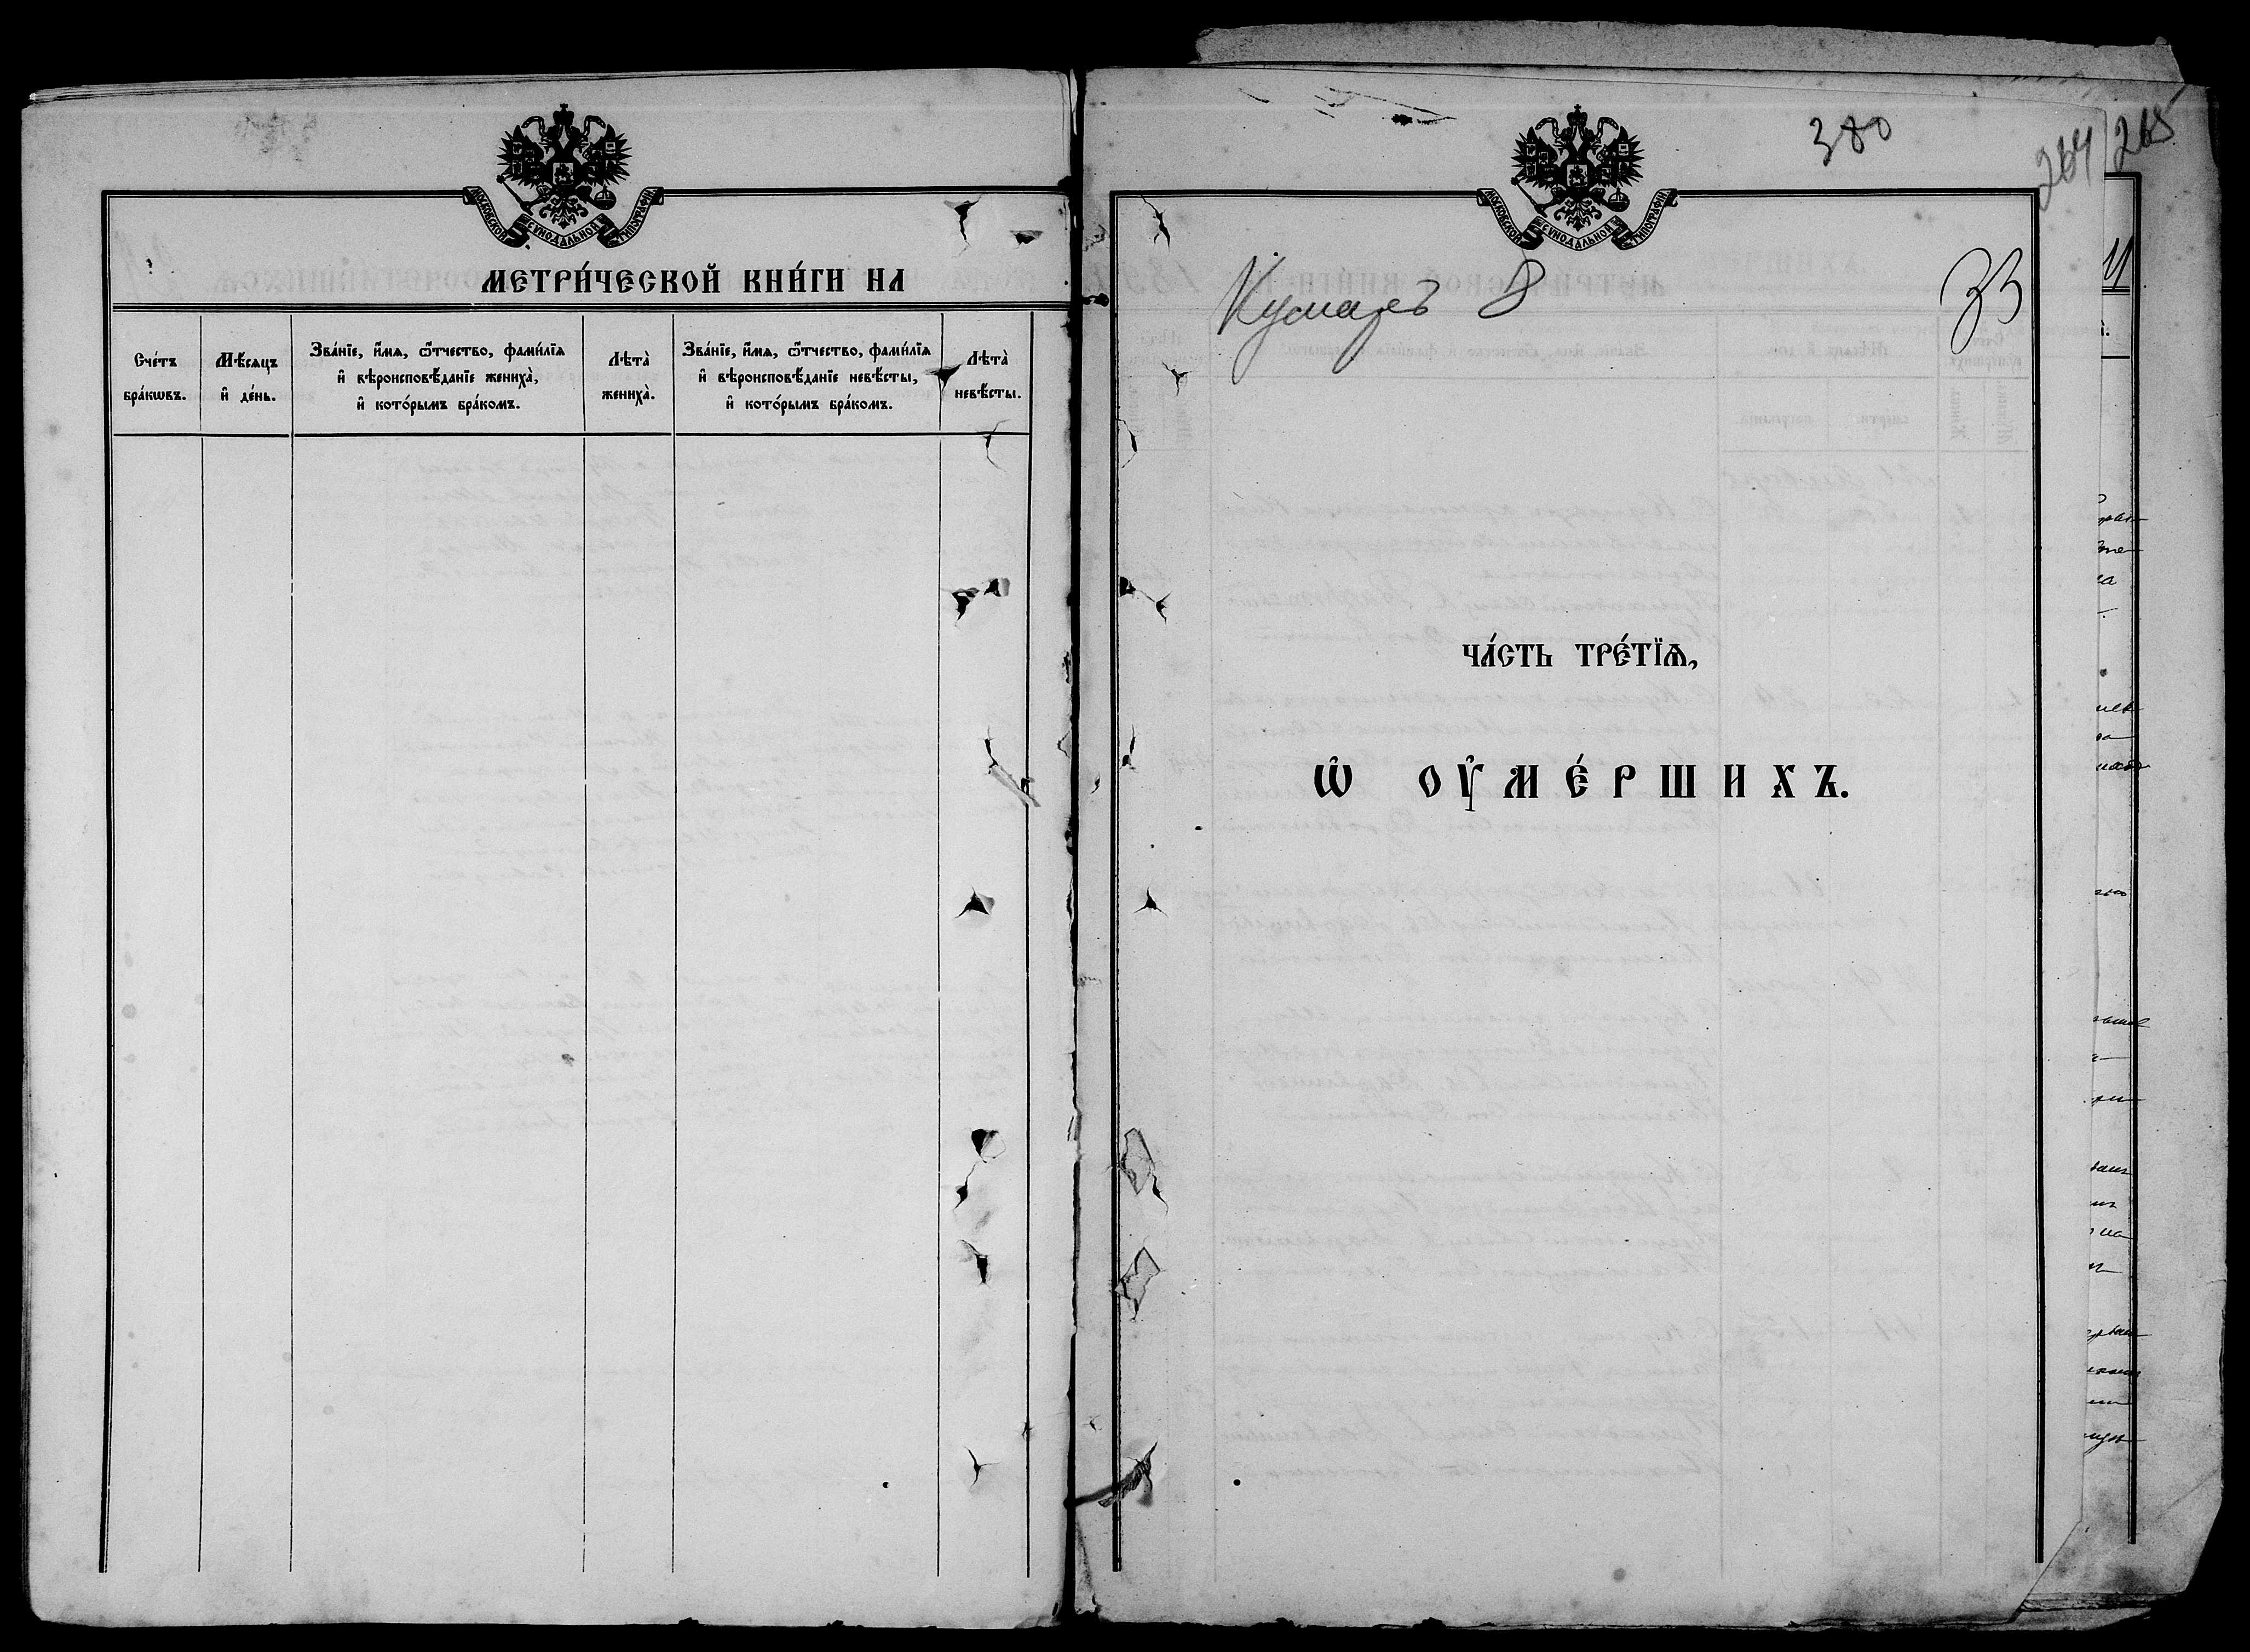 МОСКОВСКОЙ СѴНОДАЛЬНОЙ ТИПОГРАФІИ
МЕТРИ́ЧЕСКОЙ КНИ́ГИ НА
Сче́тъ бра́кѡвъ.
Мѣ́сяцъ и҆ де́нь.
Зва́нїе, и҆́мя, ѻ҆́тчество, фами́лїя
и҆ вѣроисповѣ́данїе жениха̀,
и҆ кото́рымъ бра́комъ.
Лѣта̀ жениха̀.
Зва́нїе, и҆́мя, ѻ҆́тчество, фами́лїя
и҆ вѣроисповѣ́данїе невѣ́сты,
и҆ кото́рымъ бра́комъ.
Лѣта̀ невѣ́сты.
380
264
265
МОСКОВСКОЙ СѴНОДАЛЬНОЙ ТИПОГРАФІИ
Кумаръ 8
33
ЧА́СТЬ ТРЕ́ТЇѦ,
Ѡ҆ ОУ҆МЕ́РШИХЪ.